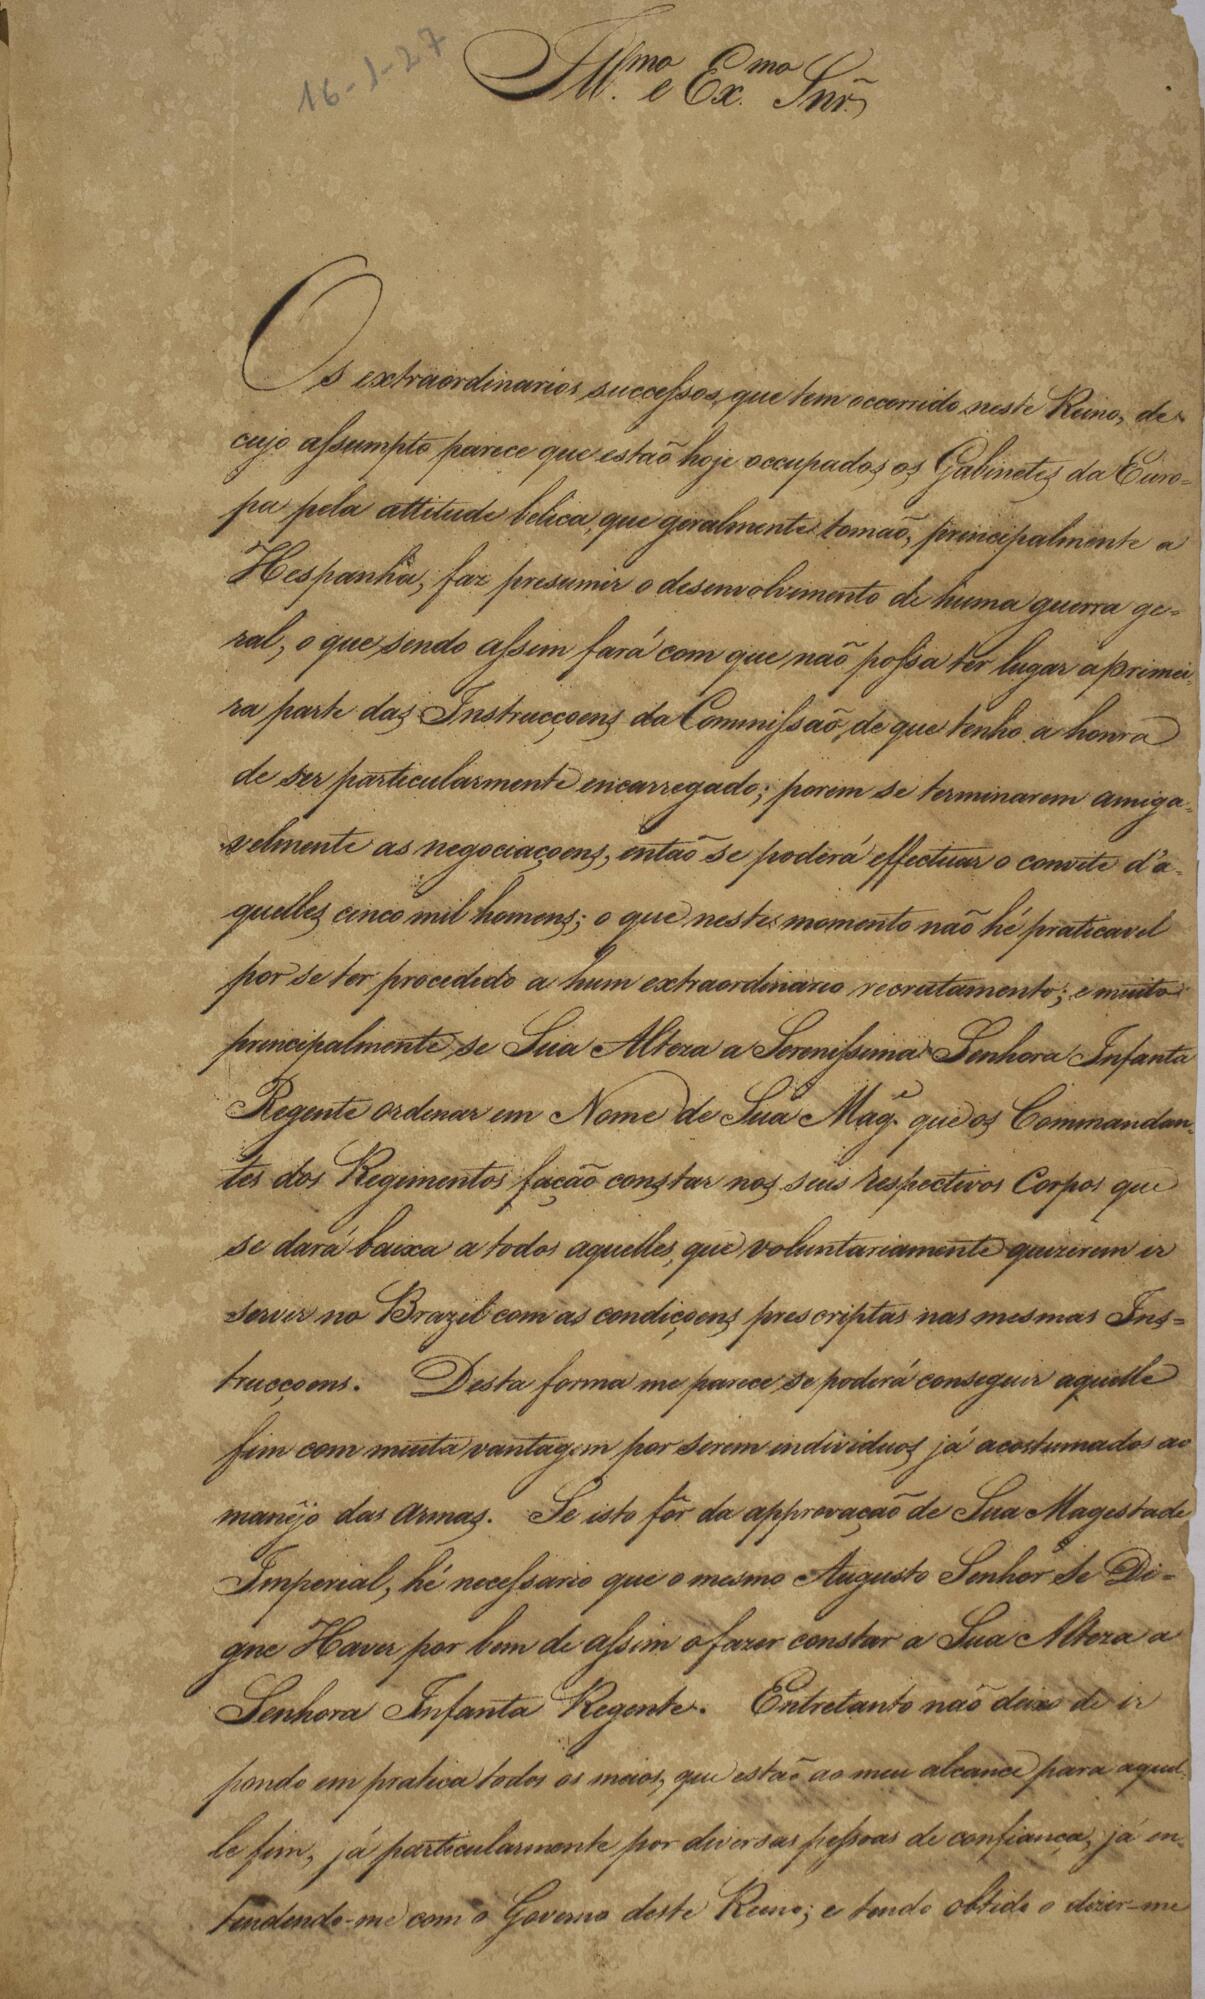 16-1-27
Ill.mo e Ex.mo Snr.
Os extraordinarios successos, que tem occorrido neste Reino, de
cujo assumpto parece que estão hoje occupados os Gabinetes da Euro=
pa pela attitude belica, que geralmente tomão, principalmente a
Hespanha, faz presumir o desenvolvimento de huma guerra ge=
ral, o que sendo assim fará com que não possa ter lugar a primei-
ra parte das Instrucçoens da Commissão, de que tenho a honra
de ser particularmente encarregado; porem se terminarem amiga-
velmente as negociaçoens, então se poderá effectuar o convite d'a-
quelles cinco mil homens; o que neste momento não hé praticavel
por se ter procedido a hum extraordinario recrutamento; e muito
principalmente se Sua Alteza a Serenissima Senhora Infanta
Regente ordenar em Nome de Sua Mag.e que os Commandan-
tes dos Regimentos fação constar nos seus respectivos Corpos que
se dará baixa a todos aquelles, que voluntariamente quizerem ir
servir no Brazil com as condiçoens prescriptas nas mesmas Ins=
trucçoens. Desta forma me parece se poderá conseguir aquelle
fim com muita vantagem por serem individuos já acostumados ao
manêjo das armas. Se isto fôr da approvação de Sua Magestade
Imperial, hé necessario que o mesmo Augusto Senhor Se Di=
gne Haver por bem de assim o fazer constar a Sua Alteza a
Senhora Infanta Regente. Entretanto não deixo de ir
pondo em pratica todos os meios, que estão ao meu alcance para aquel-
le fim, já particularmente por diversas pessoas de confiança, já en-
tendendo-me com o Governo deste Reino; e tendo obtido o dizer-me